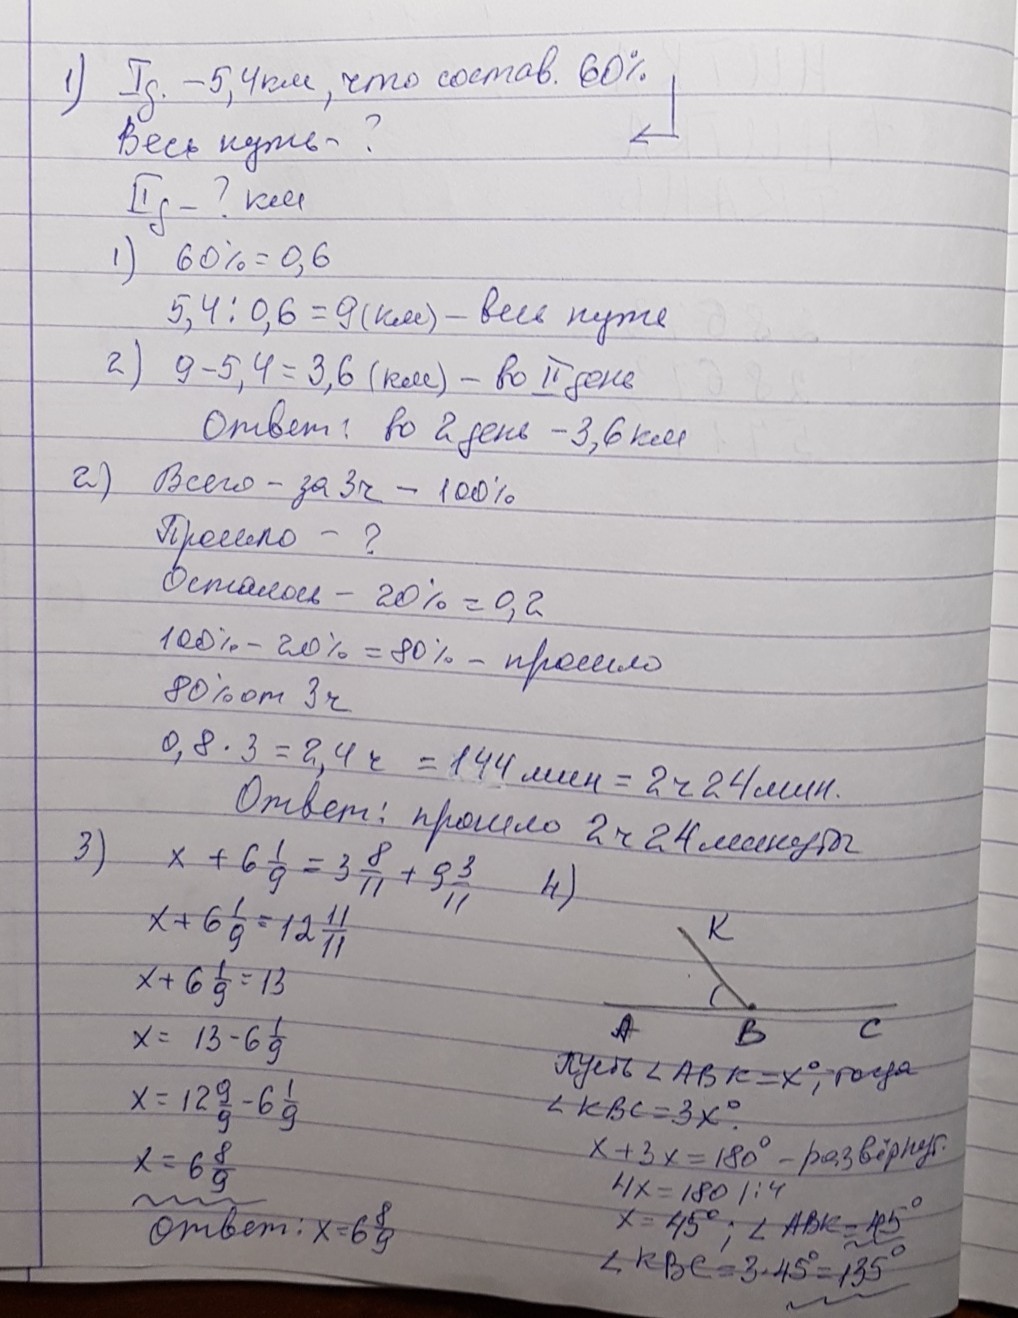 1) I д. - 5,4 км, что состав. 60%
Весь путь - ?
II д - ? км
1) 60% = 0,6
5,4 : 0,6 = 9 (км) - весь путь
2) 9 - 5,4 = 3,6 (км) - во II день
Ответ: во 2 день - 3,6 км
2) Всего - за 3 ч - 100%
Прошло - ?
Осталось - 20% = 0,2
100% - 20% = 80% - прошло
80% от 3 ч
0,8 · 3 = 2,4 ч = 144 мин = 2 ч 24 мин.
Ответ: прошло 2 ч 24 минуты
3) x + 6 1/9 = 3 8/11 + 9 3/11
x + 6 1/9 = 12 11/11
x + 6 1/9 = 13
x = 13 - 6 1/9
x = 12 9/9 - 6 1/9
x = 6 8/9
Ответ: x = 6 8/9
4)
K
A B C
Пусть ∠ABK = x°, тогда
∠KBC = 3x°.
x + 3x = 180° - развёрнут.
4x = 180 |:4
x = 45°; ∠ABK = 45°
∠KBC = 3·45° = 135°